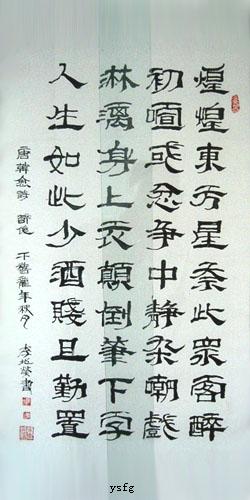 煌煌東方星奈此衆客醉
初喧或忿争中靜杂嘲戲
淋漓身上衣顛倒筆下字
人生如此少酒賤且勤置
唐韓愈詩 年秋月 書
ysfg